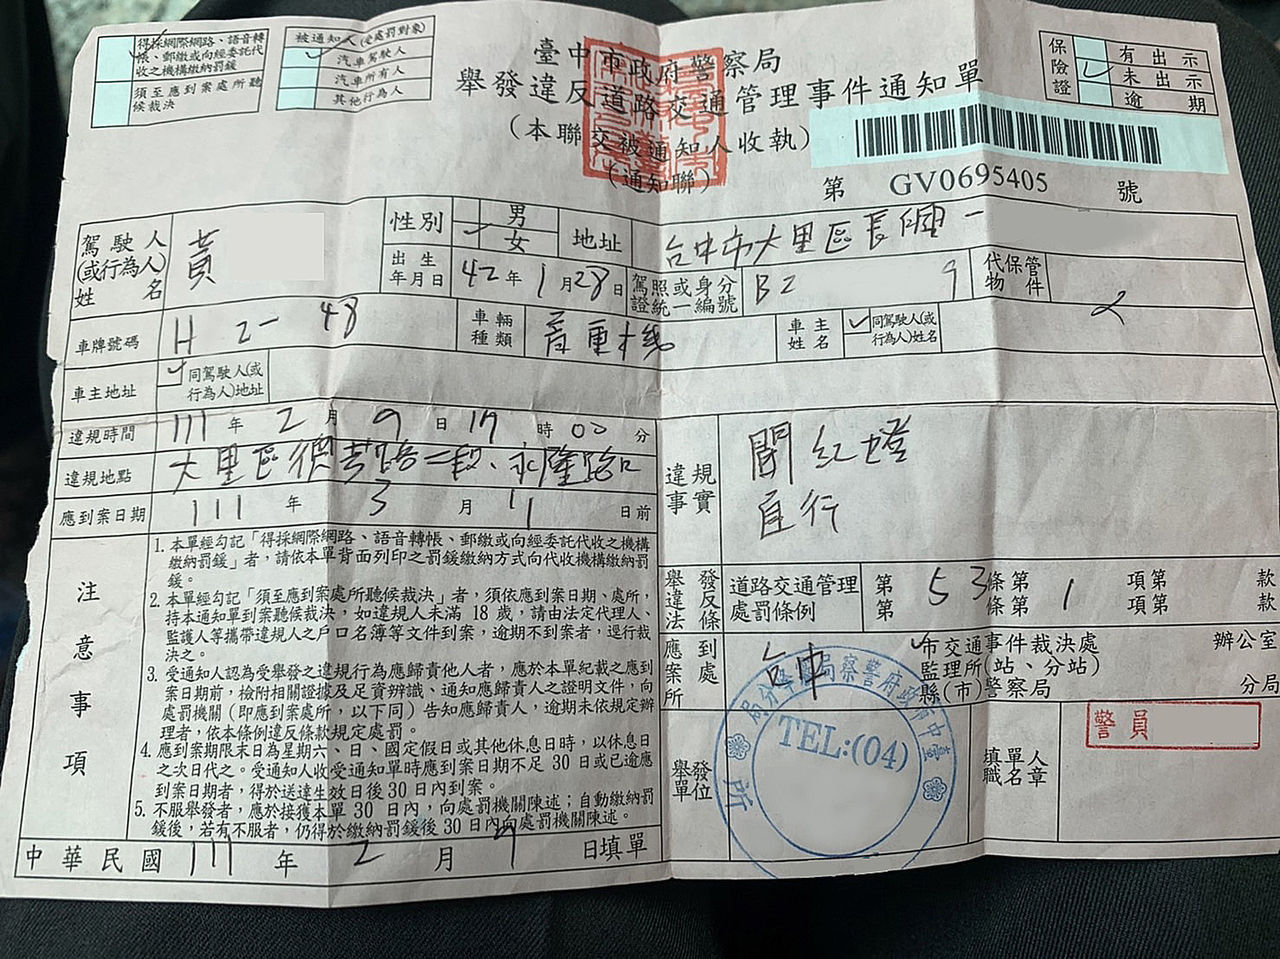 得採網際網路、語音轉
帳、郵繳或向經委託代
收之機構繳納罰鍰
須至應到案處所聽
候裁決
被通知人(受處罰對象)
汽車駕駛人
汽車所有人
其他行為人
臺中市政府警察局
舉發違反道路交通管理事件通知單
(本聯交被通知人收執)
(通知聯)
保險證
有出示
未出示
逾期
第 GV0695405 號
駕駛人
(或行為人)
姓名
黃
性別
男
女
地址
台中市大里區長興一
出生
年月日
42年1月28日
駕照或身分
證統一編號
B2 9
代保管
物件
車牌號碼
H 2- 48
車輛
種類
普重機
車主
姓名
同駕駛人(或
行為人)姓名
車主地址
同駕駛人(或
行為人)地址
違規時間
111年2月9日17時00分
違規地點
大里區德芳路二段、永隆路口
應到案日期
111年3月11日前
違規
事實
闖紅燈
直行
注意事項
1. 本單經勾記「得採網際網路、語音轉帳、郵繳或向經委託代收之機構
繳納罰鍰」者,請依本單背面列印之罰鍰繳納方式向代收機構繳納罰
鍰。
2. 本單經勾記「須至應到案處所聽候裁決」者,須依應到案日期、處所,
持本通知單到案聽候裁決,如違規人未滿 18 歲,請由法定代理人、
監護人等攜帶違規人之戶口名簿等文件到案,逾期不到案者,逕行裁
決之。
3. 受通知人認為受舉發之違規行為應歸責他人者,應於本單紀載之應到
案日期前,檢附相關證據及足資辨識、通知應歸責人之證明文件,向
處罰機關(即應到案處所,以下同)告知應歸責人,逾期未依規定辦
理者,依本條例違反條款規定處罰。
4. 應到案期限末日為星期六、日、國定假日或其他休息日時,以休息日
之次日代之。受通知人收受通知單時應到案日期不足 30 日或已逾應
到案日期者,得於送達生效日後 30 日內到案。
5. 不服舉發者,應於接獲本單 30 日內,向處罰機關陳述;自動繳納罰
鍰後,若有不服者,仍得於繳納罰鍰後 30 日內向處罰機關陳述。
舉發
違反
法條
道路交通管理
處罰條例
第53條第1項第款
第條第項第款
應到
案處
所
台中
市交通事件裁決處 辦公室
監理所(站、分站)
縣(市)警察局 分局
舉發
單位
臺中市政府警察局
TEL:(04)
所
填單人
職名章
警員
中華民國111年2月9日填單